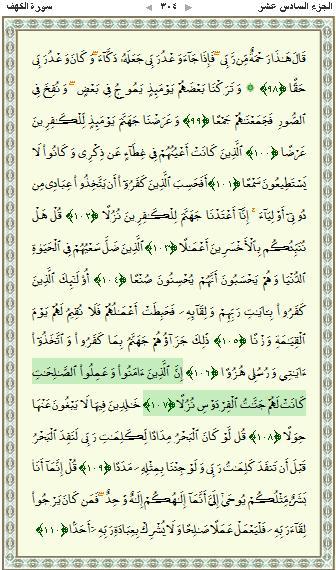 الجزء السادس عشر ٣٠٤ سورة الكهف
قَالَ هَٰذَا رَحْمَةٌ مِّن رَّبِّي ۖ فَإِذَا جَاءَ وَعْدُ رَبِّي جَعَلَهُ دَكَّاءَ ۖ وَكَانَ وَعْدُ رَبِّي
حَقًّا ﴿٩٨﴾ ۞ وَتَرَكْنَا بَعْضَهُمْ يَوْمَئِذٍ يَمُوجُ فِي بَعْضٍ ۖ وَنُفِخَ فِي
الصُّورِ فَجَمَعْنَاهُمْ جَمْعًا ﴿٩٩﴾ وَعَرَضْنَا جَهَنَّمَ يَوْمَئِذٍ لِّلْكَافِرِينَ
عَرْضًا ﴿١٠٠﴾ الَّذِينَ كَانَتْ أَعْيُنُهُمْ فِي غِطَاءٍ عَن ذِكْرِي وَكَانُوا لَا
يَسْتَطِيعُونَ سَمْعًا ﴿١٠١﴾ أَفَحَسِبَ الَّذِينَ كَفَرُوا أَن يَتَّخِذُوا عِبَادِي مِن
دُونِي أَوْلِيَاءَ ۚ إِنَّا أَعْتَدْنَا جَهَنَّمَ لِلْكَافِرِينَ نُزُلًا ﴿١٠٢﴾ قُلْ هَلْ
نُنَبِّئُكُم بِالْأَخْسَرِينَ أَعْمَالًا ﴿١٠٣﴾ الَّذِينَ ضَلَّ سَعْيُهُمْ فِي الْحَيَاةِ
الدُّنْيَا وَهُمْ يَحْسَبُونَ أَنَّهُمْ يُحْسِنُونَ صُنْعًا ﴿١٠٤﴾ أُولَٰئِكَ الَّذِينَ
كَفَرُوا بِآيَاتِ رَبِّهِمْ وَلِقَائِهِ فَحَبِطَتْ أَعْمَالُهُمْ فَلَا نُقِيمُ لَهُمْ يَوْمَ
الْقِيَامَةِ وَزْنًا ﴿١٠٥﴾ ذَٰلِكَ جَزَاؤُهُمْ جَهَنَّمُ بِمَا كَفَرُوا وَاتَّخَذُوا
آيَاتِي وَرُسُلِي هُزُوًا ﴿١٠٦﴾ إِنَّ الَّذِينَ آمَنُوا وَعَمِلُوا الصَّالِحَاتِ
كَانَتْ لَهُمْ جَنَّاتُ الْفِرْدَوْسِ نُزُلًا ﴿١٠٧﴾ خَالِدِينَ فِيهَا لَا يَبْغُونَ عَنْهَا
حِوَلًا ﴿١٠٨﴾ قُل لَّوْ كَانَ الْبَحْرُ مِدَادًا لِّكَلِمَاتِ رَبِّي لَنَفِدَ الْبَحْرُ
قَبْلَ أَن تَنفَدَ كَلِمَاتُ رَبِّي وَلَوْ جِئْنَا بِمِثْلِهِ مَدَدًا ﴿١٠٩﴾ قُلْ إِنَّمَا أَنَا
بَشَرٌ مِّثْلُكُمْ يُوحَىٰ إِلَيَّ أَنَّمَا إِلَٰهُكُمْ إِلَٰهٌ وَاحِدٌ ۖ فَمَن كَانَ يَرْجُوا
لِقَاءَ رَبِّهِ فَلْيَعْمَلْ عَمَلًا صَالِحًا وَلَا يُشْرِكْ بِعِبَادَةِ رَبِّهِ أَحَدًا ﴿١١٠﴾